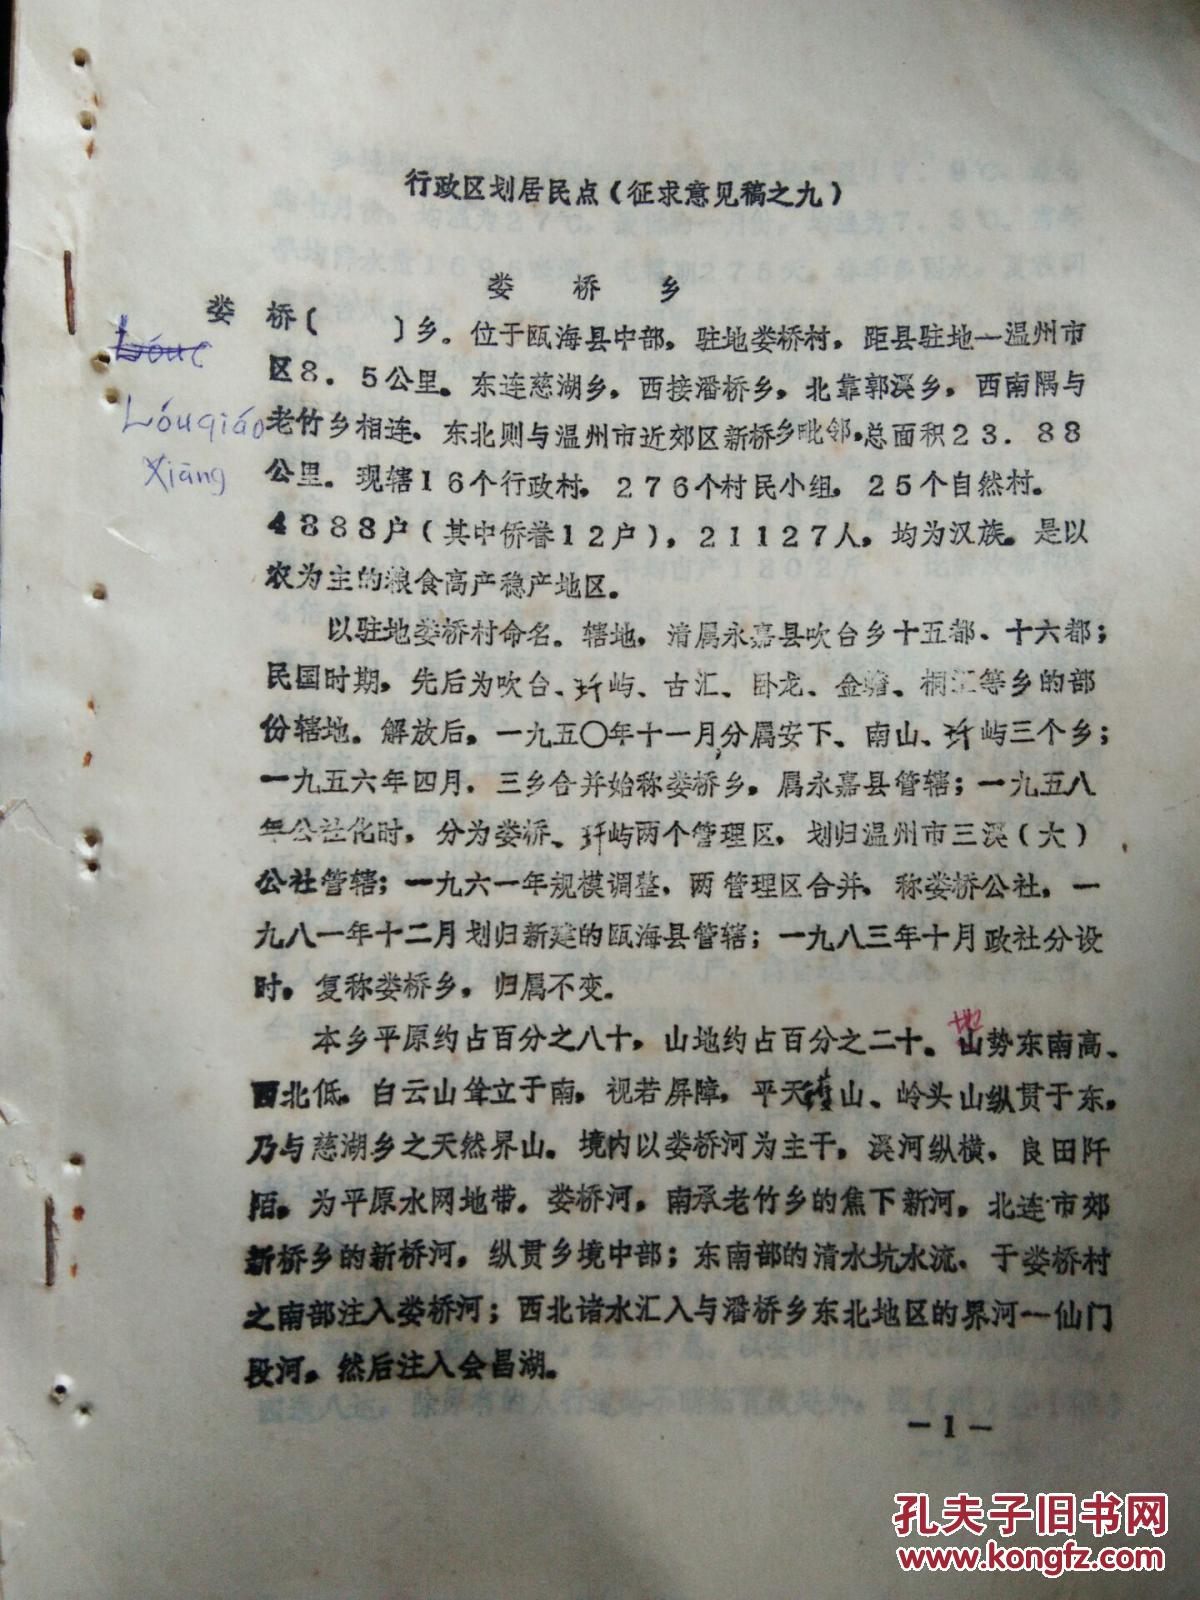 行政区划居民点（征求意见稿之九）
娄桥乡
娄桥〔　　〕乡。位于瓯海县中部，驻地娄桥村，距县驻地—温州市
Lóuc
区8.5公里。东连慈湖乡，西接潘桥乡，北靠郭溪乡，西南隅与
Lóuqiáo
老竹乡相连，东北则与温州市近郊区新桥乡毗邻，总面积23.88
Xiāng
公里。现辖16个行政村，276个村民小组，25个自然村。
4888户（其中侨眷12户），21127人，均为汉族。是以
农为主的粮食高产稳产地区。
以驻地娄桥村命名。辖地，清属永嘉县吹台乡十五都、十六都；
民国时期，先后为吹台、圻屿、古汇、卧龙、金蟾、桐汇等乡的部
份辖地。解放后，一九五〇年十一月，分属安下、南山、圻屿三个乡；
一九五六年四月，三乡合并始称娄桥乡，属永嘉县管辖；一九五八
年公社化时，分为娄桥、圻屿两个管理区，划归温州市三溪（大）
公社管辖；一九六一年规模调整，两管理区合并，称娄桥公社，一
九八一年十二月划归新建的瓯海县管辖；一九八三年十月政社分设
时，复称娄桥乡，归属不变。
本乡平原约占百分之八十，山地约占百分之二十。地山势东南高、
西北低，白云山耸立于南，视若屏障，平天山、岭头山纵贯于东，
乃与慈湖乡之天然界山。境内以娄桥河为主干，溪河纵横，良田阡
陌，为平原水网地带。娄桥河，南承老竹乡的焦下新河，北连市郊
新桥乡的新桥河，纵贯乡境中部；东南部的清水坑水流，于娄桥村
之南部注入娄桥河；西北诸水汇入与潘桥乡东北地区的界河—仙门
段河，然后注入会昌湖。
—1—
孔夫子旧书网
www.kongfz.com